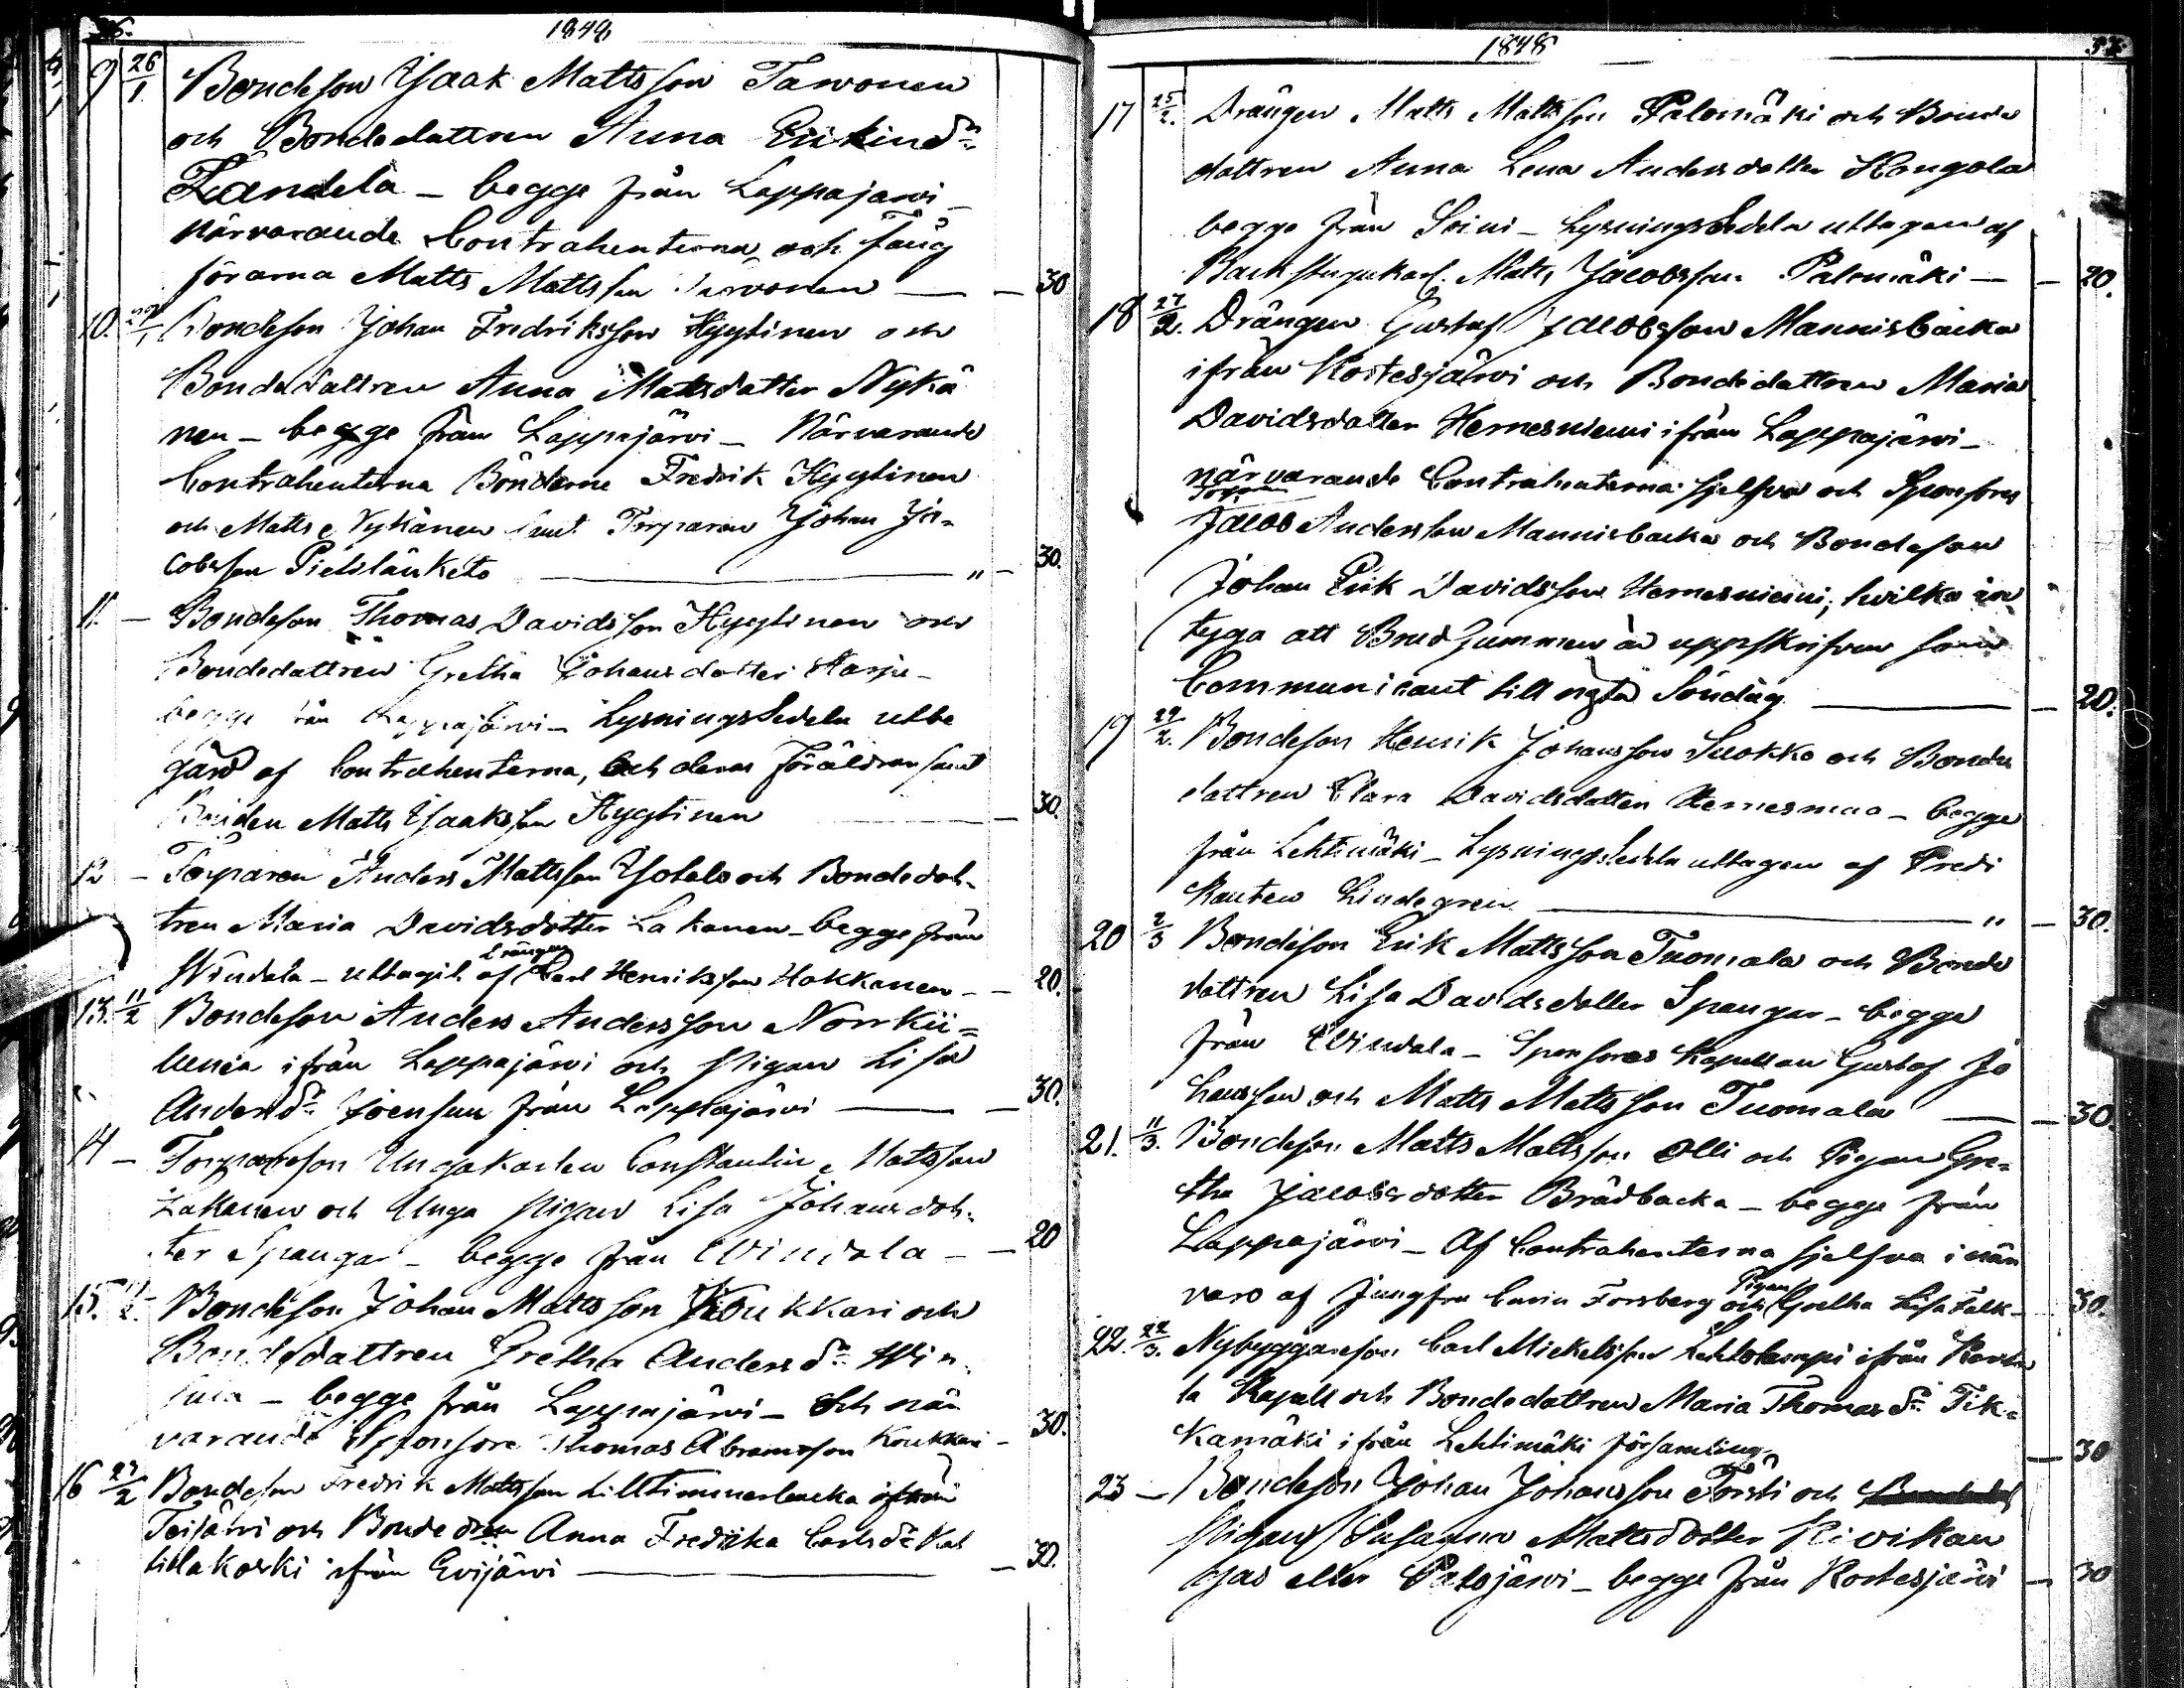 36.
1848
9 26/1 Bondeson Isaak Mattsson Tarvonen
och Bondedattren Anna Erikind:r
Landela – begge från Lappajärvi –
närvarande Contrahenterna och Fäng
förarna Matts Mattsson Tarvonen — — 30
10. 29/1 Bondeson Johan Fredriksson Hyytinen och
Bondedattren Anna Mattsdatter Nykä
nen – begge från Lappajärvi – Närvarande
Contrahenterna Bönderne Fredrik Hyytinen
och Matts Nykänen samt Torparen Johan Ja=
cobsson Pietiläinketo — " — 30.
11. — Bondeson Thomas Davidsson Hyytinen och
Bondedattren Gretha Johansdotter Harju –
begge från Lappajärvi – Lysningssedeln utbe
gärd af Contrahenterna, och deras Föräldrar samt
Bonden Matts Isaaksson Hyytinen — 30.
12 – Torparen Anders Mattsson Ybtalo och Bondedot=
tren Maria Davidsdotter Lakanen – begge från
Windala – uttagit af Drängen Carl Henriksson Hokkanen – – 20.
13. 11/2 Bondeson Anders Andersson Norrkii=
luenia ifrån Lappajärvi och Pigan Lisa
Andersd:r Joensuu från Lappajärvi — — 30.
14 – Torpareson Ungakarlen Constantin Mattsson
Lakanen och Unga Pigan Lisa Johansdot=
ter Spangar – begge från Windala – – 20
15. 11/2. Bondeson Johan Mattsson Koukkari och
Bondedattren Gretha Andersd:r Win
jula – begge från Lappajärvi – Och när
varande Sponsore Thomas Abramsson Koukkari – 30.
16 27/2 Bondeson Fredrik Mattsson Lilltimmerbacka ifrån
Teisjärvi och Bondedren Anna Fredrika Carlsd:r Kat
tilakoski ifrån Evijärvi — — 30.
37.
1848
17 25/2. Drängen Matts Mattsson Palomäki och Bonde
dattren Anna Lena Andersdotter Kangola
begge från Soini – Lysningssedeln uttagen af
Backstugukarl. Matts Jacobsson Palomäki — — 20.
18 27/2. Drängen Gustaf Jacobsson Mannisbacka
ifrån Kortesjärvi och Bondedattren Maria
Davidsdatter Hernesniemi ifrån Lappajärvi –
närvarande Contrahenterna sjelfva och Sponsores
Torparen Jacob Andersson Mannisbacka och Bondeson
Johan Erik Davidsson Hernesniemi, hvilka in
tyga att Brudgummen är uppskrifven som
Communicant till nästa Söndag — — 20.
19 29/2. Bondeson Henrik Johansson Suokko och Bonde
dattren Clara Davidsdotter Hernesmaa – begge
från Lehtimäki – Lysningssedeln uttagen af Predi
kanten Lindegren — " — 30.
20 2/3 Bondeson Erik Mattsson Tuomala och Bonde
dattren Lisa Davidsdotter Spangar – begge
från Windala – Sponsores Kapellan Gustaf Jo
hansson och Matts Mattsson Tuomala — — 30
21. 11/3. Bondeson Matts Mattsson Olli och Pigan Gre=
tha Jacobsdotter Brådbacka – begge från
Lappajärvi – Af Contrahenterna sjelfva i när
varo af Jungfru Carin Forsberg och Pigan Gretha Lisa Falk – 30.
22. 22/3. Nybyggareson Carl Mickelsson Lehtolampi ifrån
la Kapell och Bondedattren Maria Thomasd:r Tik=
kamäki ifrån Lehtimäki församling — 30
23 – Bondeson Johan Johansson Törsti och
Pigan Susanna Mattsdotter Kivikan
gas eller Patojärvi – begge från Kortesjärvi — 30